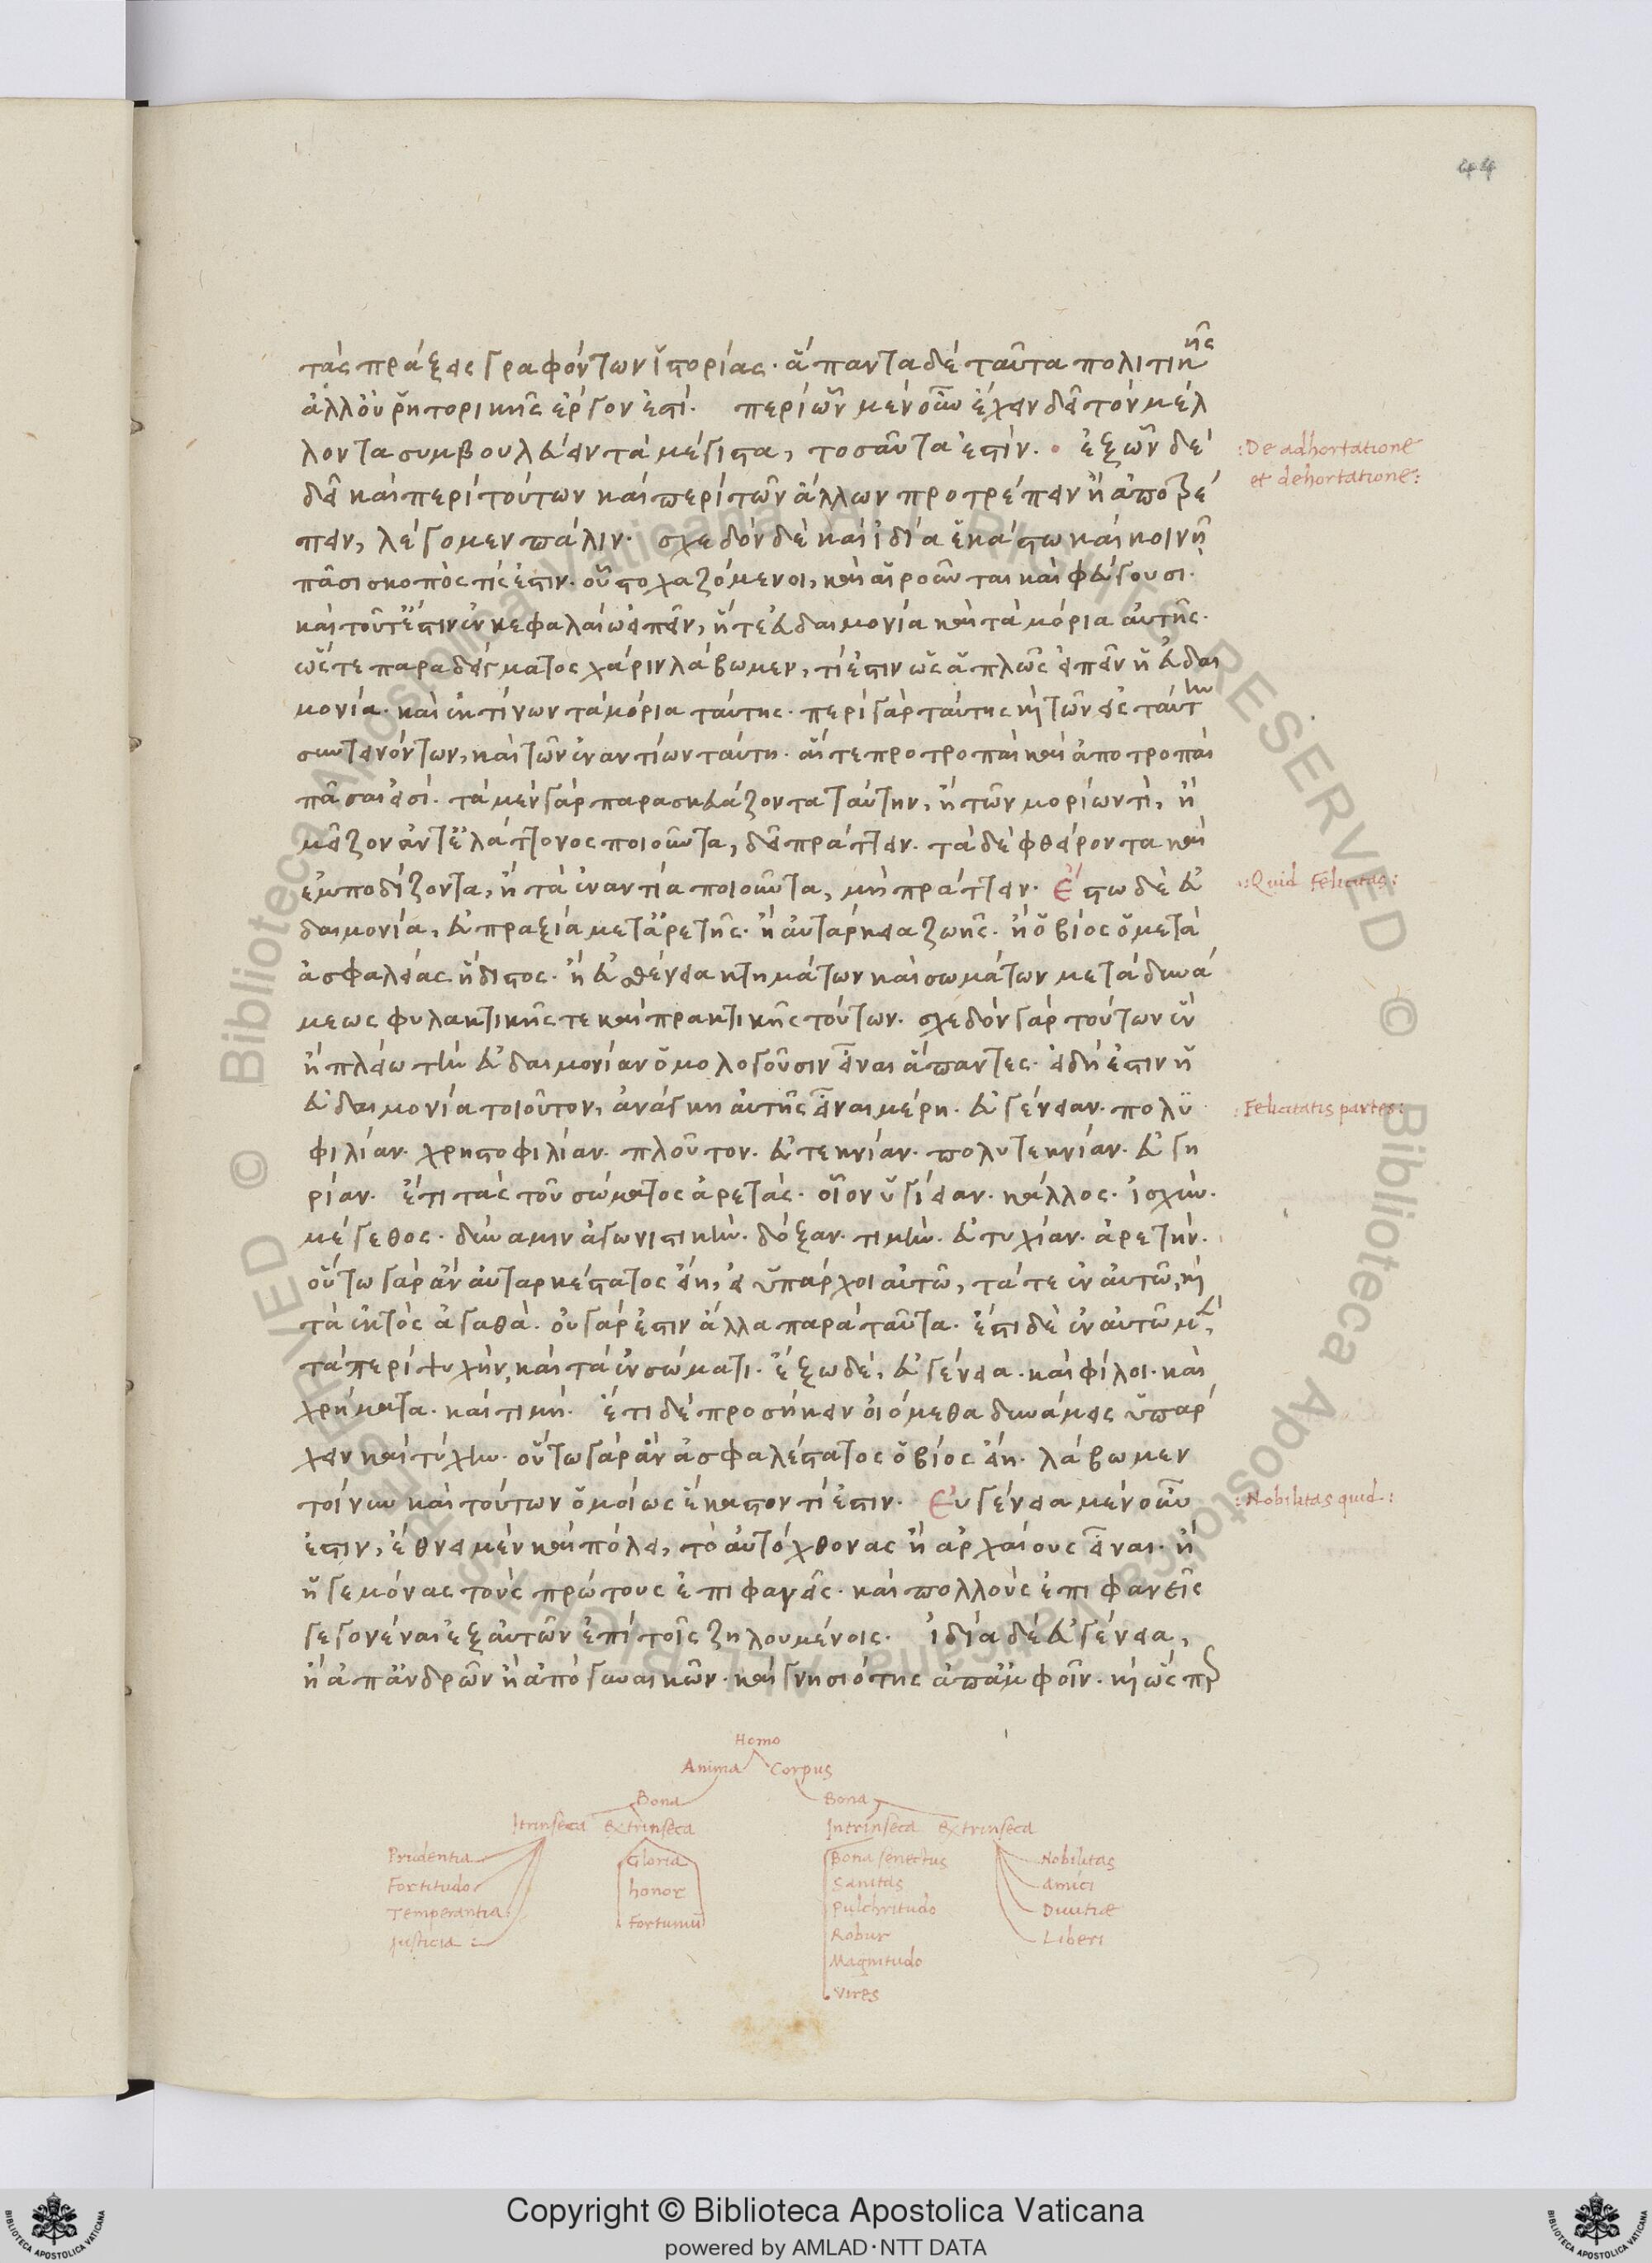 44
τὰς πράξεις γραφόντων ἱστορίας· ἅπαντα δὲ ταῦτα πολιτικῆς
ἀλλ' οὐ ῥητορικῆς ἔργον ἐστί. περὶ ὧν μὲν οὖν ἔχειν δεῖ τὸν μέλ
λοντα συμβουλεύειν τὰ μέγιστα, τοσαῦτα ἐστίν. ἐξ ὧν δὲ
:De adhortatione
et dehortatione:
δεῖ καὶ περὶ τούτων καὶ περὶ τῶν ἄλλων προτρέπειν ἢ ἀποτρέ
πειν, λέγομεν πάλιν. σχεδὸν δὲ καὶ ἰδία ἑκάστω καὶ κοινῆ
πᾶσι σκοπὸς τίς ἐστιν. οὗ στοχαζόμενοι, καὶ αἱροῦνται καὶ φεύγουσι.
καὶ τοῦτ' ἔστιν ἐν κεφαλαίω εἰπεῖν, ἥ τε εὐδαιμονία καὶ τὰ μόρια αὐτῆς.
ὥστε παραδείγματος χάριν λάβωμεν, τί ἐστιν ὡς ἁπλῶς εἰπεῖν ἡ εὐδαι
μονία. καὶ ἐκ τίνων τὰ μόρια ταύτης. περὶ γὰρ ταύτης καὶ τῶν εἰς ταύτην
συντεινόντων, καὶ τῶν ἐναντίων ταύτη. αἵ τε προτροπαὶ καὶ ἀποτροπαὶ
πᾶσαι εἰσί. τὰ μὲν γὰρ παρασκευάζοντα ταύτην, ἢ τῶν μορίων τὶ, ἢ
μεῖζον ἀντ' ἐλάττονος ποιοῦντα, δεῖ πράττειν. τὰ δὲ φθείροντα καὶ
ἐμποδίζοντα, ἢ τὰ ἐναντία ποιοῦντα, μὴ πράττειν. ἔστω δὲ εὐ
:Quid Felicitas:
δαιμονία, εὐπραξία μετ' ἀρετῆς. ἢ αὐτάρκεια ζωῆς. ἢ ὁ βίος ὁ μετὰ
ἀσφαλείας ἥδιστος. ἢ εὐθένεια κτημάτων καὶ σωμάτων μετὰ δυνά
μεως φυλακτικῆς τε καὶ πρακτικῆς τούτων. σχεδὸν γὰρ τούτων ἓν
ἢ πλείω τὴν εὐδαιμονίαν ὁμολογοῦσιν εἶναι ἅπαντες. εἰ δή ἐστιν ἡ
εὐδαιμονία τοιοῦτον, ἀνάγκη αὐτῆς εἶναι μέρη. εὐγένειαν. πολυ
:Felicitatis partes:
φιλίαν. χρηστοφιλίαν. πλοῦτον. εὐτεκνίαν. πολυτεκνίαν. εὐγη
ρίαν. ἔτι τὰς τοῦ σώματος ἀρετάς. οἷον ὑγίειαν. κάλλος. ἰσχύν.
μέγεθος. δύναμιν ἀγωνιστικήν. δόξαν. τιμήν. εὐτυχίαν. ἀρετήν.
οὕτω γὰρ ἂν αὐταρκέστατος εἴη, εἰ ὑπάρχοι αὐτῶ, τά τε ἐν αὐτῶ, καὶ
τὰ ἐκτὸς ἀγαθά. οὐ γάρ ἐστιν ἄλλα παρὰ ταῦτα. ἔστι δὲ ἐν αὐτῶ μὲν,
τὰ περὶ ψυχὴν, καὶ τὰ ἐν σώματι. ἔξω δὲ, εὐγένεια. καὶ φίλοι. καὶ
χρήματα. καὶ τιμή. ἔτι δὲ προσήκειν οἰόμεθα δυνάμεις ὑπάρ
χειν καὶ τύχην. οὕτω γὰρ ἂν ἀσφαλέστατος ὁ βίος εἴη. λάβωμεν
τοίνυν καὶ τούτων ὁμοίως ἕκαστον τί ἐστιν. Εὐγένεια μὲν οὖν
:Nobilitas quid:
ἐστιν, ἔθνει μὲν καὶ πόλει, τὸ αὐτόχθονας ἢ ἀρχαίους εἶναι. ἢ
ἡγεμόνας τοὺς πρώτους ἐπιφανεῖς. καὶ πολλοὺς ἐπιφανεῖς
γεγονέναι ἐξ αὐτῶν ἐπὶ τοῖς ζηλουμένοις. ἰδία δὲ εὐγένεια,
ἢ ἀπ' ἀνδρῶν ἢ ἀπὸ γυναικῶν. καὶ γνησιότης ἀπ' ἀμφοῖν. καὶ ὡς
Homo
Anima Corpus
Bona Bona
Itrinseca extrinseca Intrinseca extrinseca
Prudentia Gloria Bona senectus Nobilitas
Fortitudo honor Sanitas Amici
Temperantia Pulchritudo Divitiæ
Justicia Fortuniu Robur Liberi
Magnitudo
vires
Copyright © Biblioteca Apostolica Vaticana
powered by AMLAD·NTT DATA
BIBLIOTECA APOSTOLICA VATICANA
BIBLIOTECA APOSTOLICA VATICANA